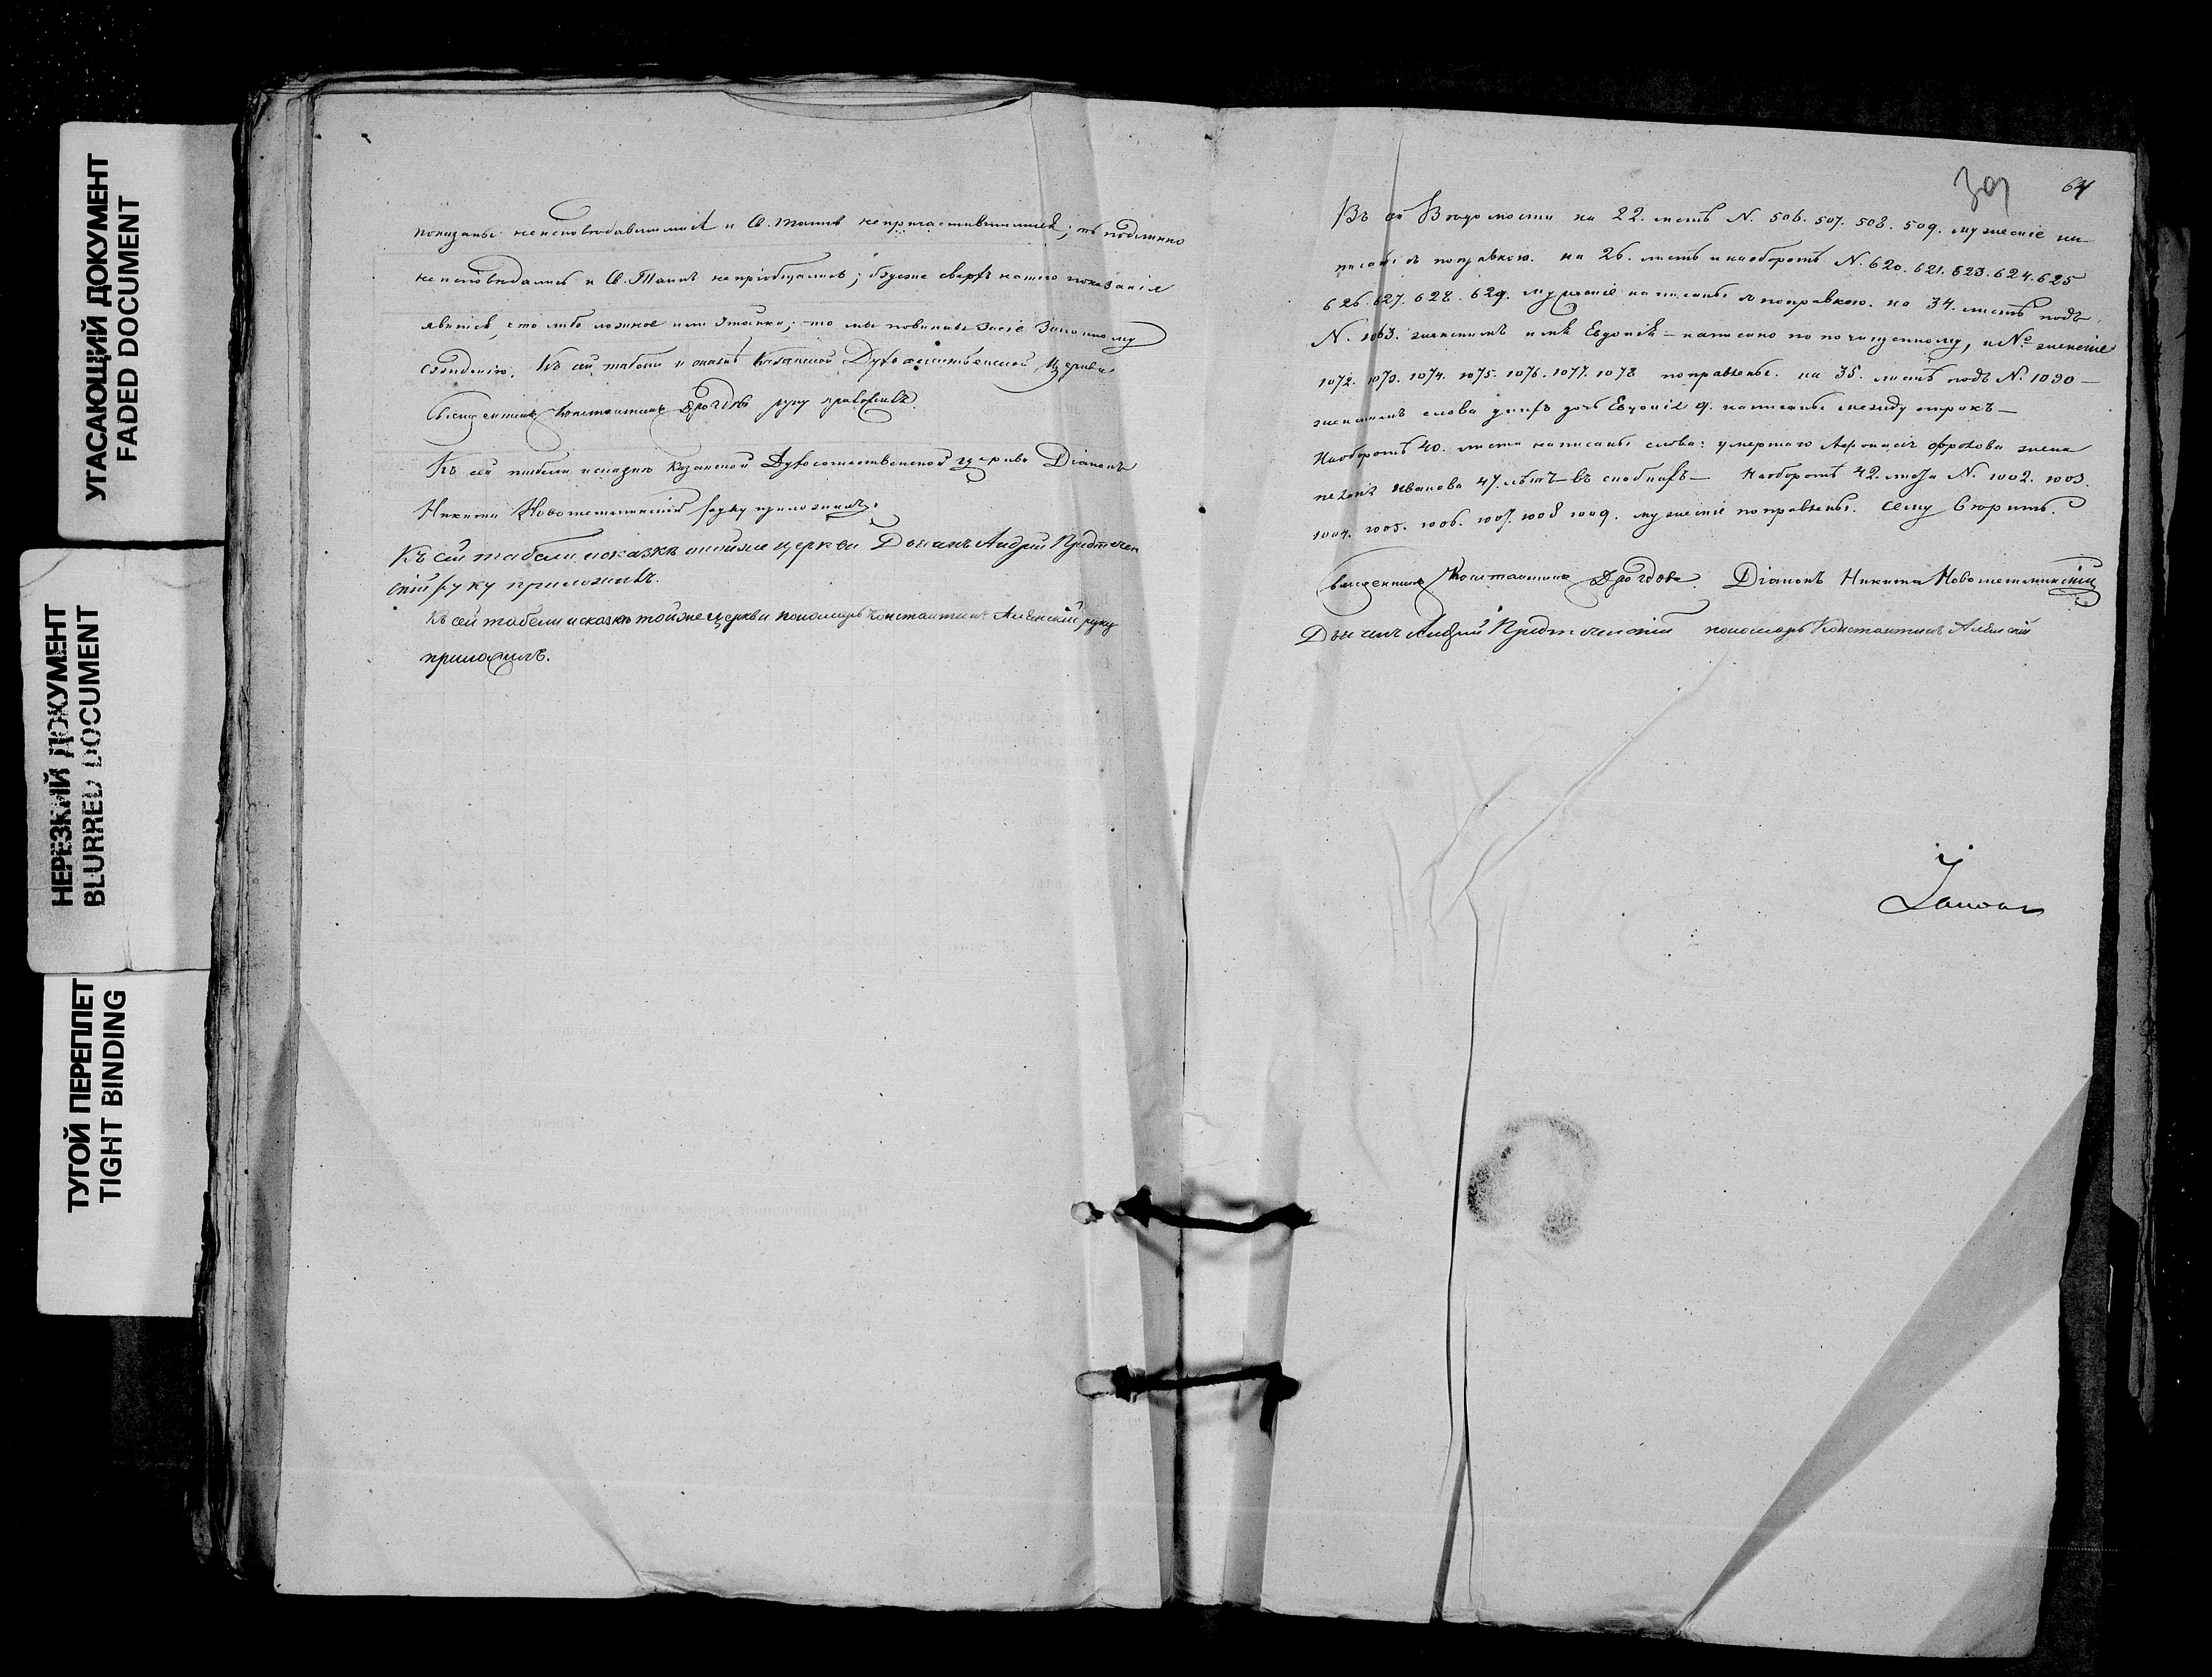 УГАСАЮЩИЙ ДОКУМЕНТ
FADED DOCUMENT
НЕРЕЗКИЙ ДОКУМЕНТ
BLURRED DOCUMENT
ТУГОЙ ПЕРЕПЛЕТ
TIGHT BINDING
показаны неисповѣдавшимися и Св. таинъ непричастившимися; тѣ подлинно
неисповѣдались и Св. Таинъ непріобщались; буде же сверхъ нашего показанія
явится, что либо ложное или утайка; то мы повинны за сіе Законному
сужденію. Къ сей табели и сказкѣ Казанской Духосошественской Церкви
Священникъ Константинъ Дроздовъ руку приложилъ.
Къ сей табели и сказкѣ Казанской Духосошественской церкви Діаконъ
Никита Новошешминскій руку приложилъ.
Къ сей табели и сказкѣ оной же церкви Дьячекъ Андрей Предтечен
скій руку приложилъ.
Къ сей табели и сказкѣ той же церкви пономарь Константинъ руку
приложилъ.
64
Въ сей Вѣдомости на 22. листѣ N. 506. 507. 508. 509. мужескіе на-
писаны съ поправкою. на 26. листѣ и наоборотѣ N. 620. 621. 623. 624. 625
626. 627. 628. 629. мужескіе написаны съ поправкою. на 34. листѣ подъ
N. 1063. женскимъ имя Евдокія – написано по почищенному, и № женскіе
1072. 1073. 1074. 1075. 1076. 1077. 1078 поправлены. на 35. листѣ подъ N. 1090 –
женскимъ слова дочь 9. написаны между строкъ –
Наоборотѣ 40. листа написаны слова: умершаго Афонасія Фролова жена
Иванова 47. лѣтъ въ скобкахъ – Наоборотѣ 42. листа N. 1002. 1003.
1004. 1005. 1006. 1007. 1008 1009. мужескіе поправлены. Сему вѣрить.
Священникъ Константинъ Дроздовъ. Діаконъ Никита Новошешминскій
Дьячекъ Андрей Предтеченскій пономарь Константинъ